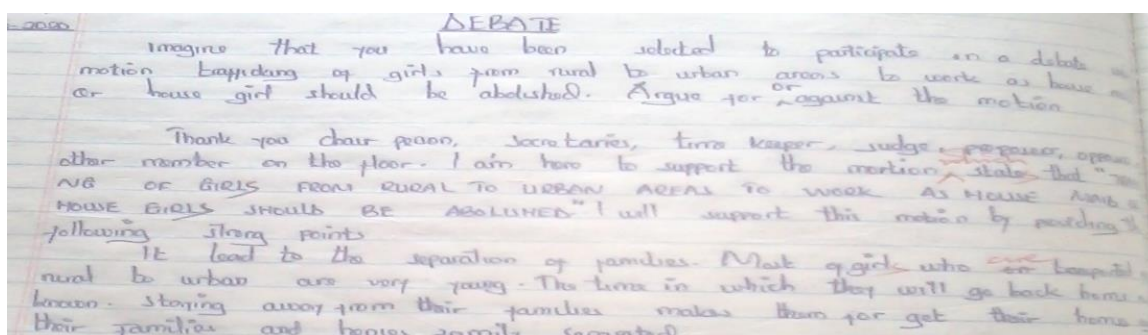 2020 DEBATE
Imagine that you have been selected to participate in a debate
motion trafficking of girls from rural to urban areas to work as house
or house girl should be abolished. Argue for or against the motion
Thank you chair person, secretaries, time keeper, judge, proposer,
other member on the floor. I am here to support the mortion state that
NG OF GIRLS FROM RURAL TO URBAN AREAS TO WORK AS HOUSE
HOUSE GIRLS SHOULD BE ABOLISHED" I will support this motion by
following strong points
It lead to the separation of families. Most of girls who are
rural to urban are very young. The time in which they will go back home
known. Staying away from their families makes them for get their home
their families and family